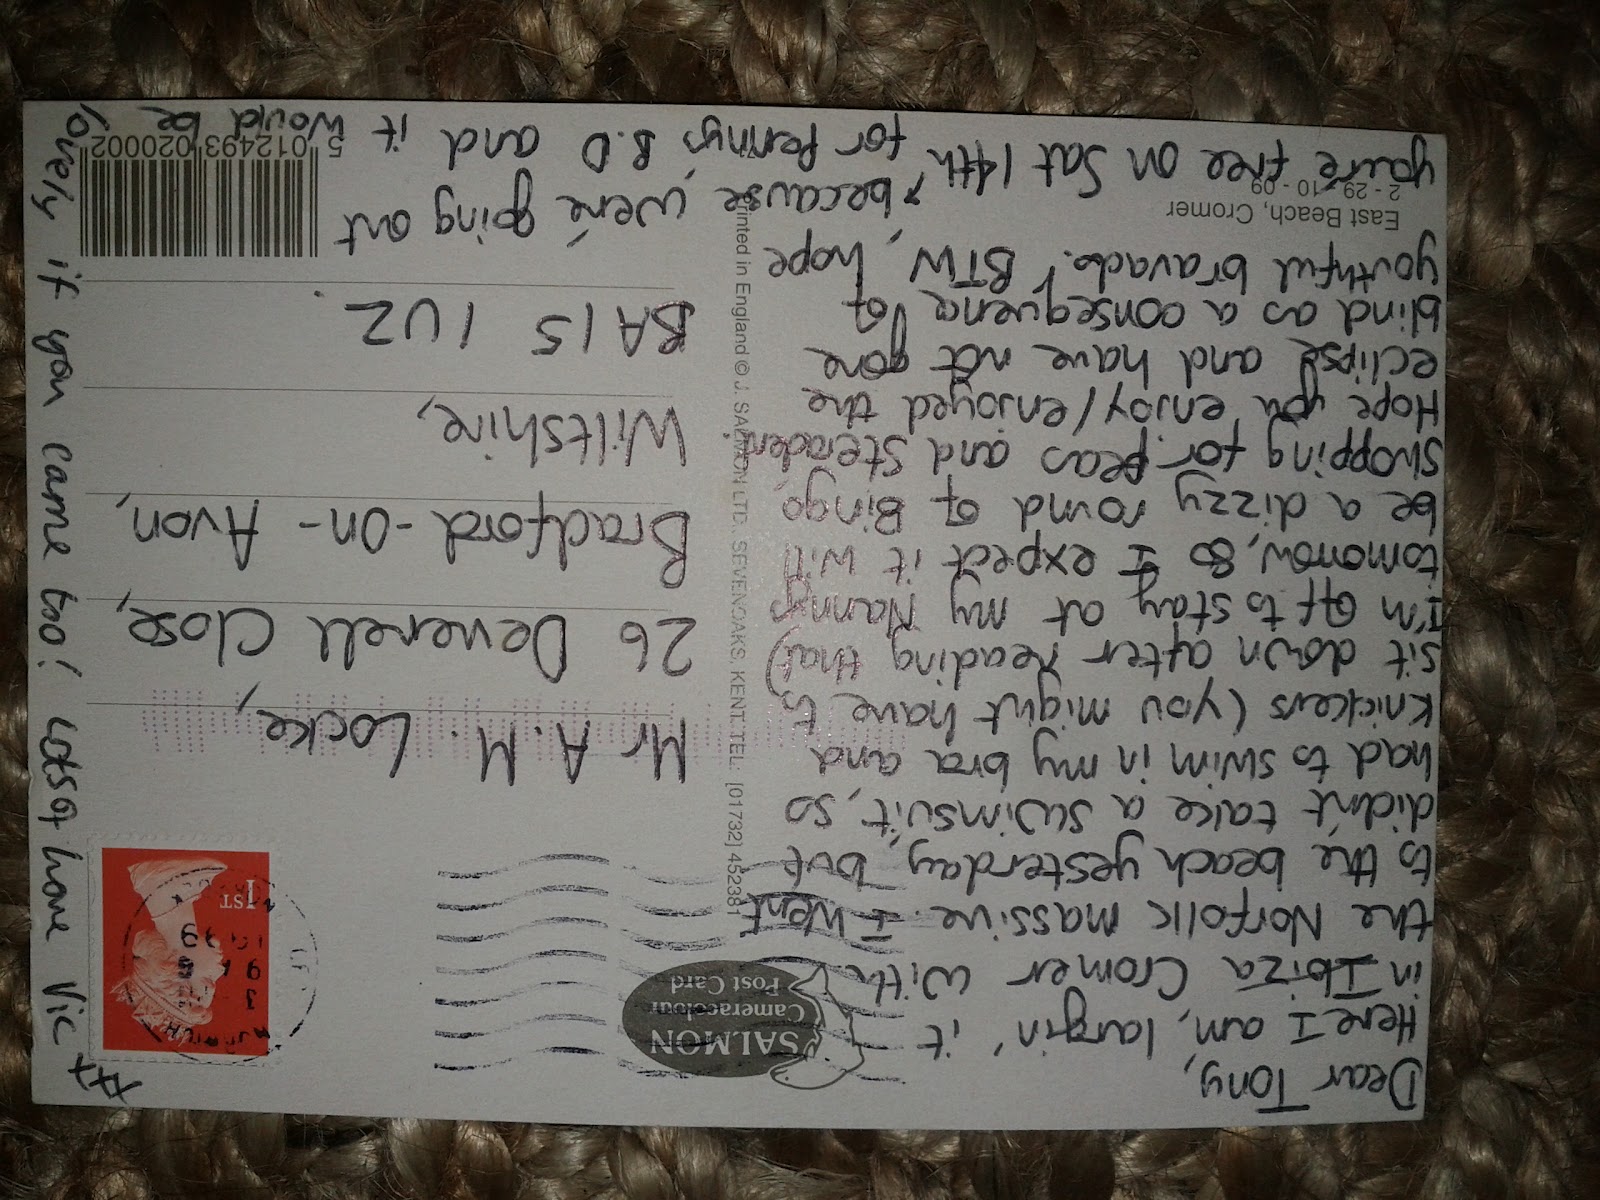 Dear Tony,
Here I am, largin' it
in Ibiza Cromer with
the Norfolk massive. I went
to the beach yesterday, but
didn't take a swimsuit, so
had to swim in my bra and
knickers (you might have to
sit down after reading that)
I'm off to stay at my Nanny's
tomorrow, so I expect it will
be a dizzy round of Bingo,
shopping for peas and Steradent.
Hope you enjoy/enjoyed the
eclipse and have not gone
blind as a consequence of
youthful bravado! BTW, hope
you're free on Sat 14th,
because we're going out
for Penny's B.D and it would be
lovely if you came too! Lots of love Vic
xxx
SALMON
Cameracolour
Post Card
East Beach, Cromer
2 - 29 - 10 - 09
Printed in England © J. SALMON LTD, SEVENOAKS, KENT. TEL: [01732] 452381
1ST
NORWICH
99
Mr A.M. Locke,
26 Deverell Close,
Bradford-on-Avon,
Wiltshire,
BA15 1UZ.
5 012493 020002